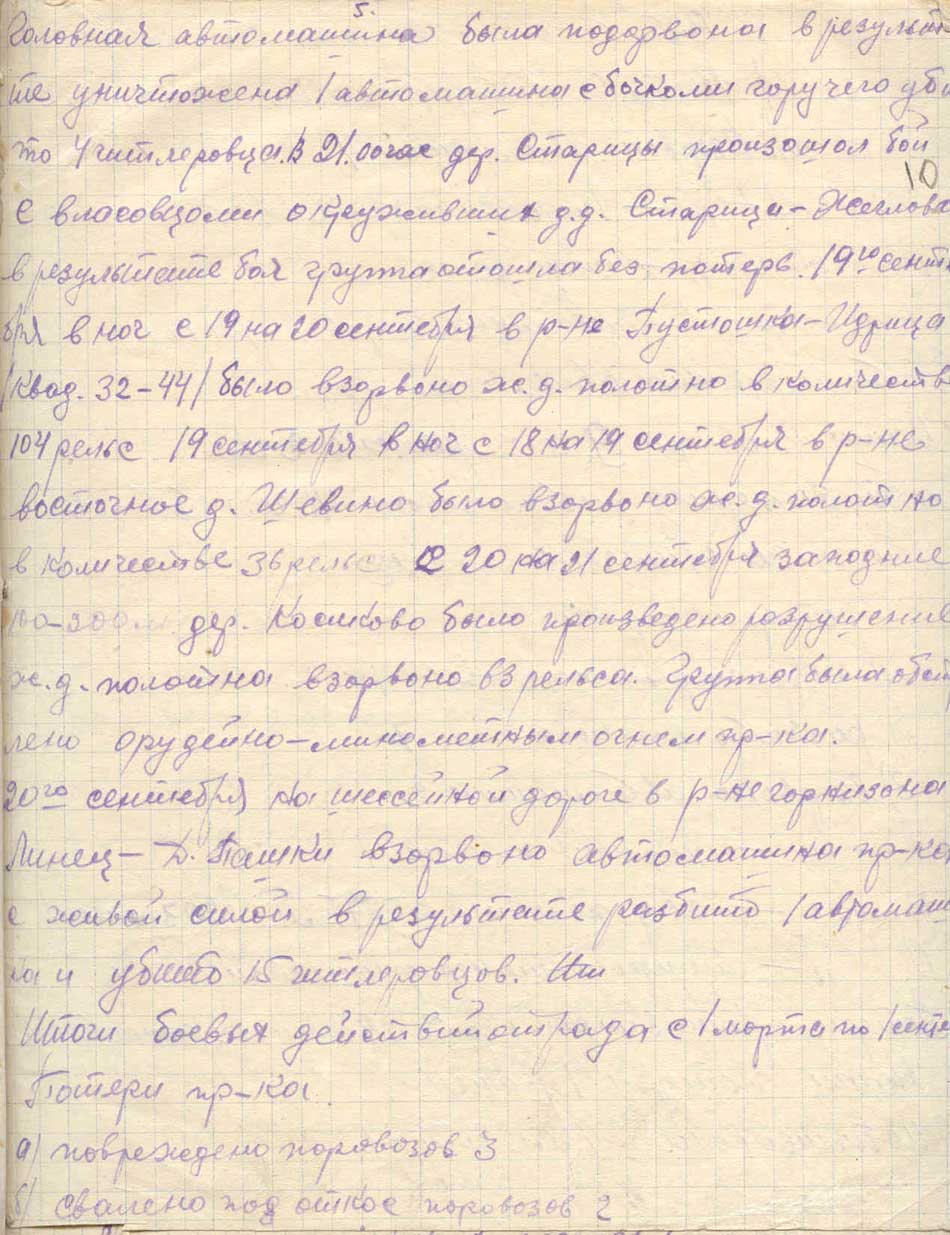 5.
Головная автомашина была подорвона в результ
те уничтожена 1 автомашина с бочкоми горучего уби
то 4 гитлеровца. В 21.00 час дер. Старицы произошол бой
10
с власовцоми окруживших д.д. Старица – Жеглова
в результате боя группа отошла без потерь. 19го сентя
бря в ноч с 19 на 20 сентября в р-не Пустошка – Идрица
/квад. 32-44/ было взорвоно ж.д. полотно в количеств
104 рельс 19 сентября в ноч с 18 на 19 сентября в р-не
восточное д. Шевино было взорвоно ж.д. полотно
в количестве 36 рельс с 20 на 21 сентября западние
100-200 м. дер. было произведено разрушение
ж.д. полотна взорвоно 63 рельса. Группа была обст
лено орудейно-минометным огнем пр-ка.
20го сентября на шосейной дороге в р-не горнизона
Линец – Д. Пашки взорвоно автомашина пр-ка
с живой силой в результате разбито 1 автомаш
на и убито 15 гитлеровцов. Ит
Итоги боевых действий отряда с 1 морта по 1 сентя
Потери пр-ка
а) повреждено поровозов 3
б) свалено под откос поровозов 2